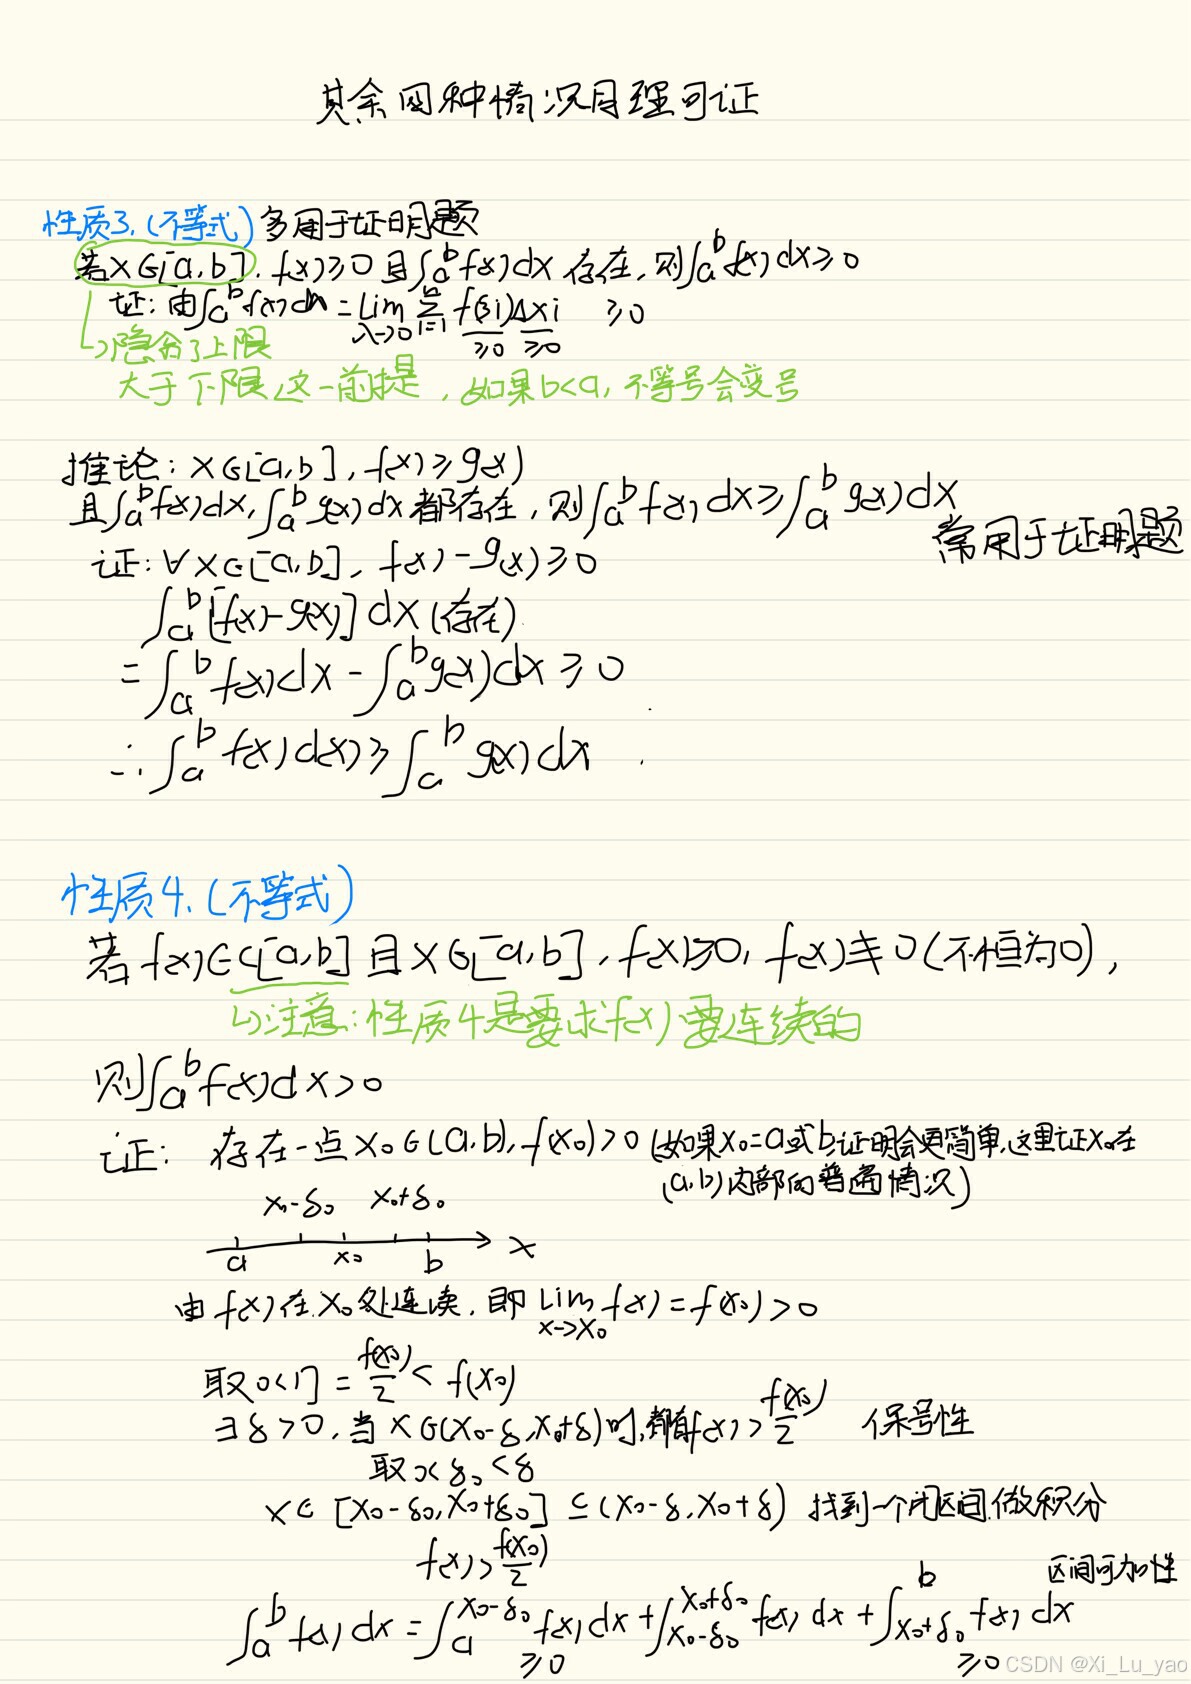 其余四种情况同理可证
性质3.(不等式)多用于证明题
若x∈[a,b],f(x)≥0且∫ₐᵇf(x)dx存在,则∫ₐᵇf(x)dx≥0
证:由∫ₐᵇf(x)dx=lim Σ f(ξi)Δxi ≥0
λ→0 i=1 n
≥0 ≥0
↳隐含了上限
大于下限这一前提,如果b<a,不等号会变号
推论:x∈[a,b],f(x)≥g(x)
且∫ₐᵇf(x)dx,∫ₐᵇg(x)dx都存在,则∫ₐᵇf(x)dx≥∫ₐᵇg(x)dx
常用于证明题
证:∀x∈[a,b],f(x)-g(x)≥0
∫ₐᵇ[f(x)-g(x)]dx(存在)
=∫ₐᵇf(x)dx-∫ₐᵇg(x)dx≥0
∴∫ₐᵇf(x)d(x)≥∫ₐᵇg(x)dx
性质4.(不等式)
若f(x)∈C[a,b]且x∈[a,b],f(x)≥0,f(x)≢0(不恒为0),
↳注意:性质4是要求f(x)要连续的
则∫ₐᵇf(x)dx>0
证: 存在一点x₀∈(a,b),f(x₀)>0(如果x₀=a或b,证明会更简单,这里证x₀在
(a,b)内部的普通情况)
x₀-δ₀ x₀+δ₀
a x₀ b x
由f(x)在x₀处连续,即lim f(x)=f(x₀)>0
x→x₀
取0<η=f(x₀)/2<f(x₀)
∃δ>0,当x∈(x₀-δ,x₀+δ)时,都有f(x)>f(x₀)/2 保号性
取0<δ₀<δ
x∈[x₀-δ₀,x₀+δ₀]⊆(x₀-δ,x₀+δ) 找到一个闭区间做积分
f(x)>f(x₀)/2
区间可加性
∫ₐᵇf(x)dx=∫ₐ^(x₀-δ₀)f(x)dx+∫_(x₀-δ₀)^(x₀+δ₀)f(x)dx+∫_(x₀+δ₀)^b f(x)dx
≥0 ≥0
CSDN @Xi_Lu_yao